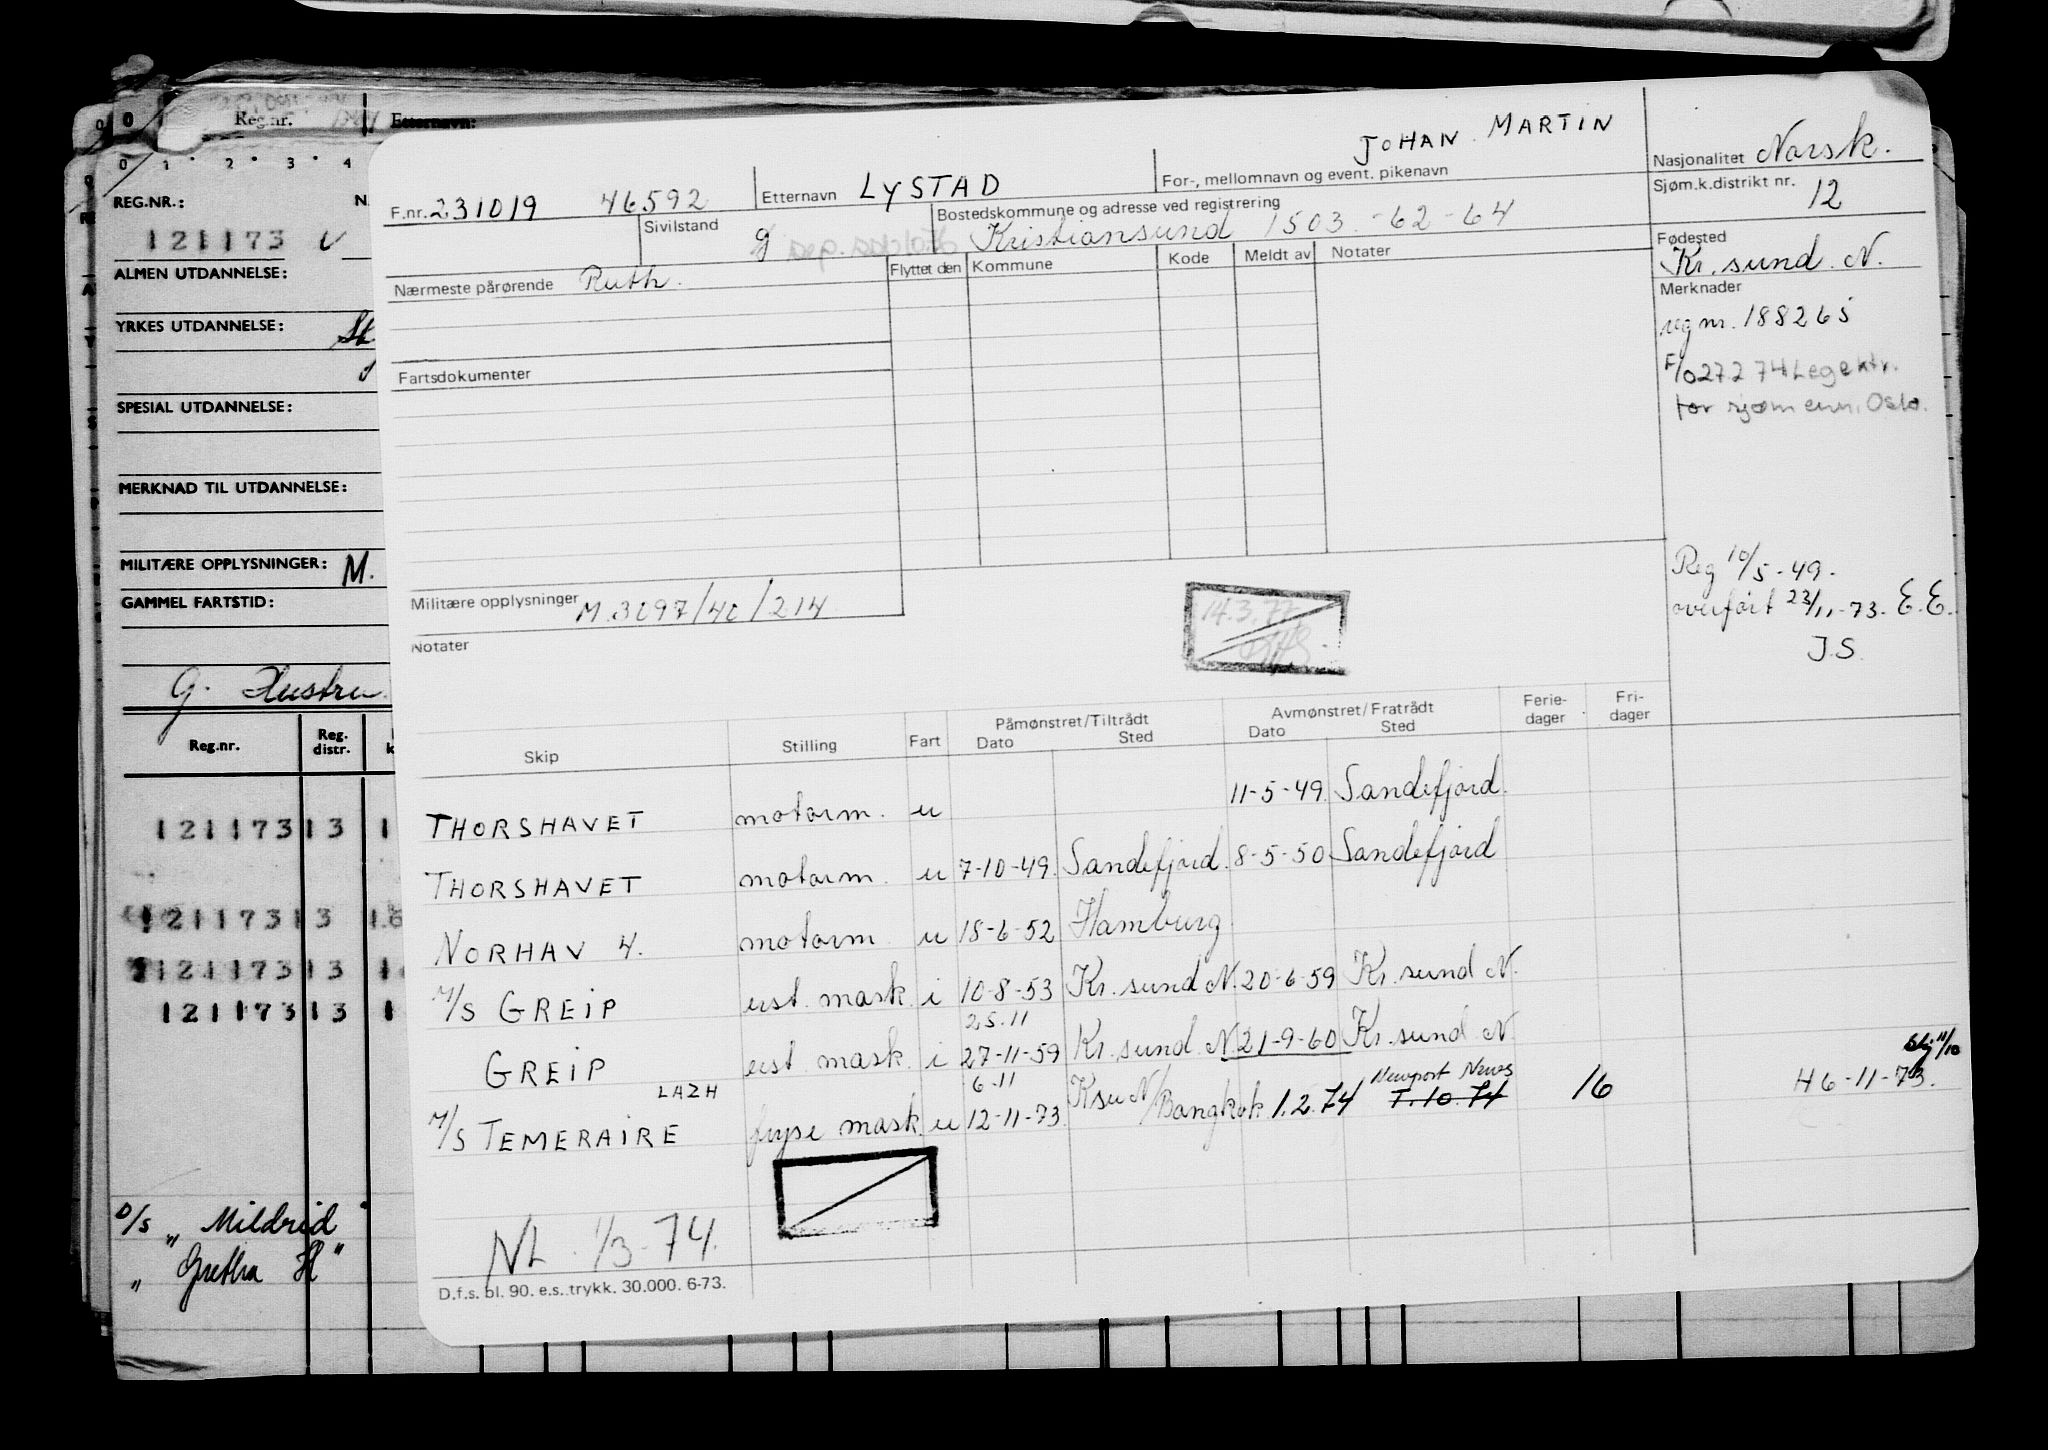 Reg.nr.
Etternavn:
0 1 2 3 4
REG.NR.:
121173
ALMEN UTDANNELSE:
YRKES UTDANNELSE:
SPESIAL UTDANNELSE:
MERKNAD TIL UTDANNELSE:
MILITÆRE OPPLYSNINGER: M.
GAMMEL FARTSTID:
G. Hustru
Reg.nr. Reg. distr.
121173 13 1
121173 13
121173 13
121173 13
D/s „ Mildrid "
„ Gretha H "
F.nr. 231019 46592
Etternavn LYSTAD
JOHAN MARTIN
For-, mellomnavn og event. pikenavn
Nasjonalitet Norsk.
Sjøm.k.distrikt nr.
12
Sivilstand g
Bostedskommune og adresse ved registrering
Kristiansund 1503 - 62 - 64
Fødested
Kr. sund. N.
Nærmeste pårørende Ruth.
Flyttet den Kommune Kode Meldt av Notater
Merknader
reg nr. 188265
F/027274 Legektr.
for sjømenn, Oslo.
Fartsdokumenter
Reg 10/5-49.
overført 23/11-73. E.E.
J.S.
Militære opplysninger M.3097/40/214
14.3.77
Notater
Skip Stilling Fart Påmønstret/Tiltrådt Dato Sted Avmønstret/Fratrådt Dato Sted Ferie-dager Fri-dager
THORSHAVET motorm. u 11-5-49. Sandefjord.
THORSHAVET motorm. u 7-10-49. Sandefjord. 8-5-50 Sandefjord
NORHAV 4. motorm u 18-6-52 Hamburg
M/S GREIP ust. mask. i 10-8-53 Kr. sund N. 20-6-59 Kr. sund N.
25.11
GREIP ust. mask. i 27-11-59 Kr. sund. N 21-9-60 Kr. sund N
LAZH 6-11 Newport News 11/10
M/S TEMERAIRE fryse mask. u 12-11-73. Ksu N/Bangkok 1.2.74 T.10.74 16 H 6-11-73.
NL 1/3-74.
D.f.s. bl. 90. e.s. trykk. 30.000. 6-73.